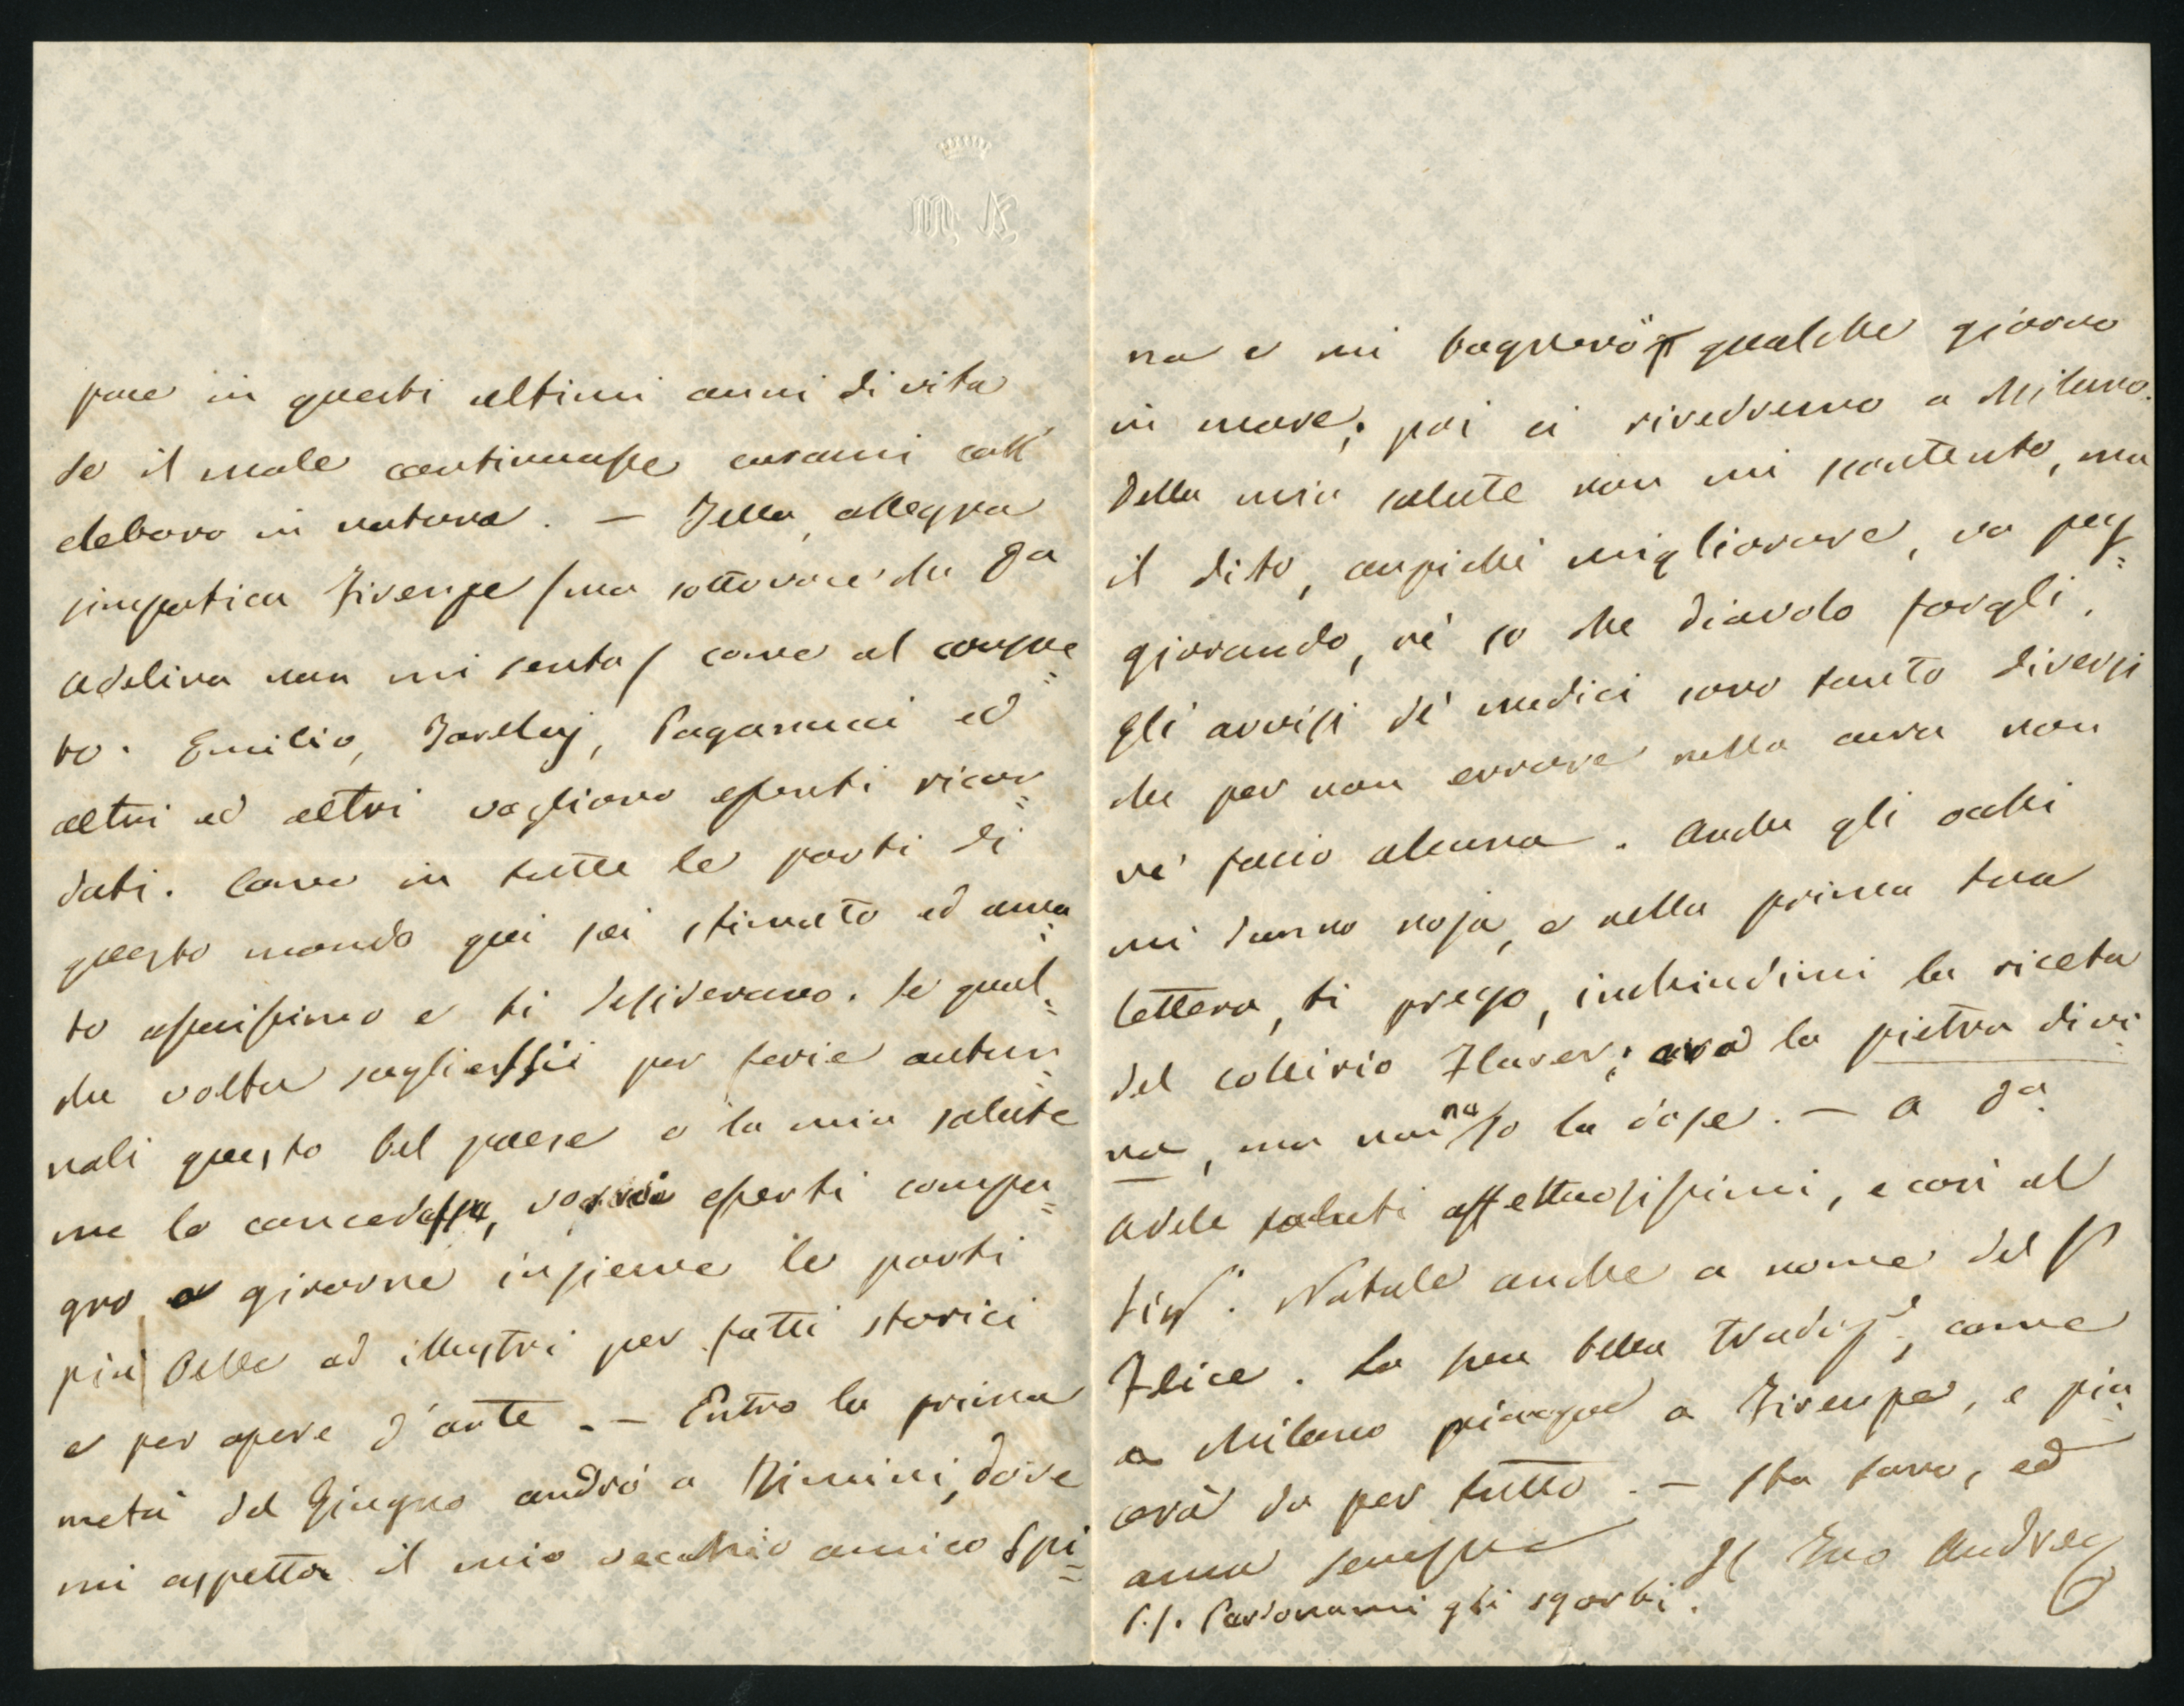 pace in questi ultimi anni di vita
Se il male continuasse curami coll'
eleboro in natura. — Bella, allegra
simpatica Firenze / ma sottovoce che Da
Adelina non mi senta / come al consue=
to. Emilio, Pagannini ed
altri ed altri vogliono esserti ricor=
dati. Come in tutte le parti di
questo mondo qui sei stimato ed ama=
to assaissimo e ti desiderano. Se qual=
che volta scegliessii per ferie autun=
nali questo bel paese e la mia salute
me lo concedesse, vorrei esserti compa=
gno a girarne insieme le parti
più belle ed illustri per fatti storici
e per opere d'arte. — Entro la prima
metà del Giugno andrò a Rimini, dove
mi aspetta il mio vecchio amico Spi=
na e mi bagnerò qualche giorno
in mare; poi ci rivedremo a Milano.
Della mia salute non mi scontento, ma
il dito, anziché migliorare, va peg=
giorando, né so che diavolo fargli.
Gli avvisi de' medici sono tanto diversi
che per non errare nella cura non
né faccio alcuna. Anche gli occhi
mi danno noja, e nella prima tua
lettera, ti prego, inchiudimi la riceta
del collirio Flarer; la pietra divi=
na, ma non so la dose. — A Da.
Adele saluti affettuosissimi, e così al
Sigr. Natale anche a nome del
Felice. La sua bella traduze, come
a Milano piacque a Firenze, e pia=
cerà da per tutto. — Sta sano, ed
ama sempre
Il Tuo Andrea
P.S. Perdonami gli sgorbi.